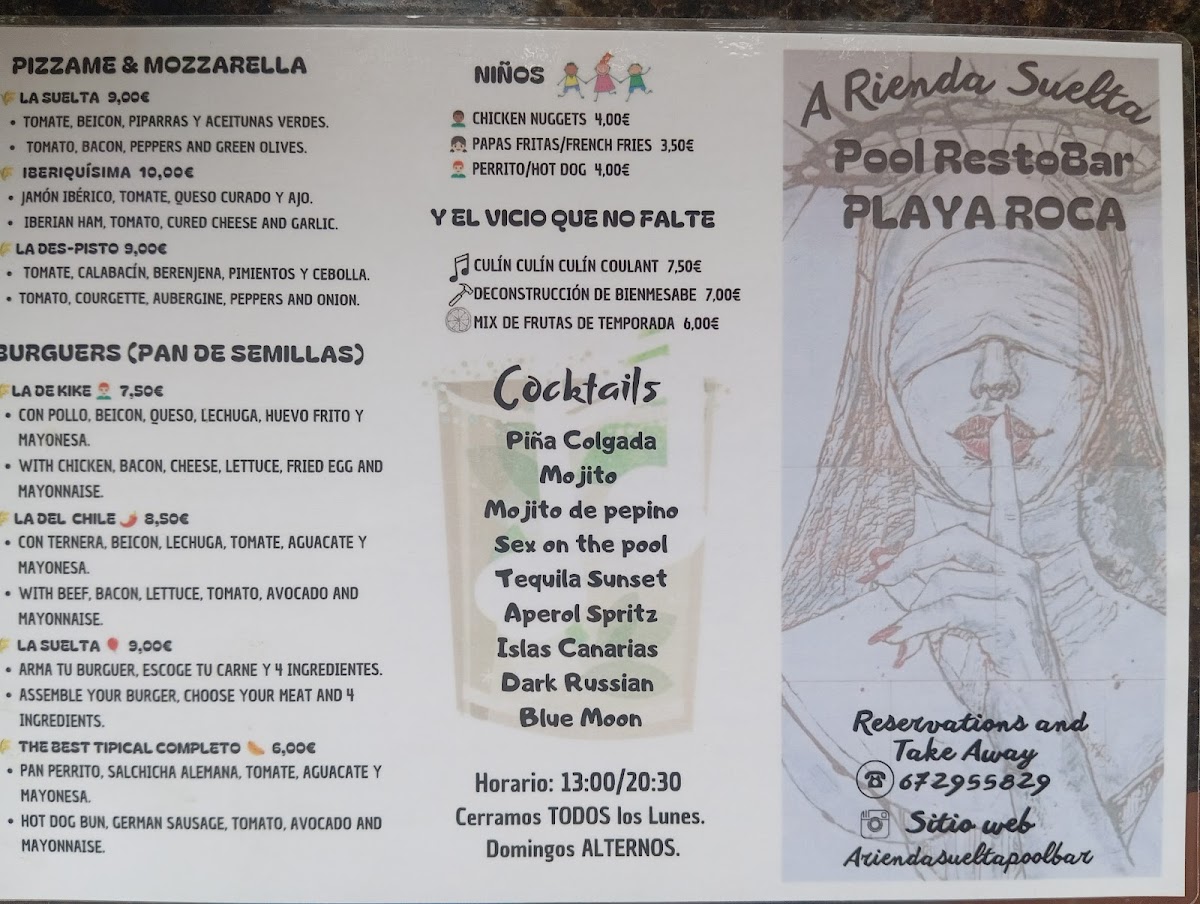 PIZZAME & MOZZARELLA
LA SUELTA 9,00€
• TOMATE, BEICON, PIPARRAS Y ACEITUNAS VERDES.
• TOMATO, BACON, PEPPERS AND GREEN OLIVES.
IBERIQUÍSIMA 10,00€
• JAMÓN IBÉRICO, TOMATE, QUESO CURADO Y AJO.
• IBERIAN HAM, TOMATO, CURED CHEESE AND GARLIC.
LA DES-PISTO 9,00€
• TOMATE, CALABACÍN, BERENJENA, PIMIENTOS Y CEBOLLA.
• TOMATO, COURGETTE, AUBERGINE, PEPPERS AND ONION.
BURGUERS (PAN DE SEMILLAS)
LA DE KIKE 7,50€
• CON POLLO, BEICON, QUESO, LECHUGA, HUEVO FRITO Y
MAYONESA.
• WITH CHICKEN, BACON, CHEESE, LETTUCE, FRIED EGG AND
MAYONNAISE.
LA DEL CHILE 8,50€
• CON TERNERA, BEICON, LECHUGA, TOMATE, AGUACATE Y
MAYONESA.
• WITH BEEF, BACON, LETTUCE, TOMATO, AVOCADO AND
MAYONNAISE.
LA SUELTA 9,00€
• ARMA TU BURGUER, ESCOGE TU CARNE Y 4 INGREDIENTES.
• ASSEMBLE YOUR BURGER, CHOOSE YOUR MEAT AND 4
INGREDIENTS.
THE BEST TIPICAL COMPLETO 6,00€
• PAN PERRITO, SALCHICHA ALEMANA, TOMATE, AGUACATE Y
MAYONESA.
• HOT DOG BUN, GERMAN SAUSAGE, TOMATO, AVOCADO AND
MAYONNAISE.
NIÑOS
CHICKEN NUGGETS 4,00€
PAPAS FRITAS/FRENCH FRIES 3,50€
PERRITO/HOT DOG 4,00€
Y EL VICIO QUE NO FALTE
CULÍN CULÍN CULÍN COULANT 7,50€
DECONSTRUCCIÓN DE BIENMESABE 7,00€
MIX DE FRUTAS DE TEMPORADA 6,00€
Cocktails
Piña Colgada
Mojito
Mojito de pepino
Sex on the pool
Tequila Sunset
Aperol Spritz
Islas Canarias
Dark Russian
Blue Moon
Horario: 13:00/20:30
Cerramos TODOS los Lunes.
Domingos ALTERNOS.
A Rienda Suelta
Pool RestoBar
PLAYA ROCA
Reservations and
Take Away
672955829
Sitio web
Ariendasueltapoolbar